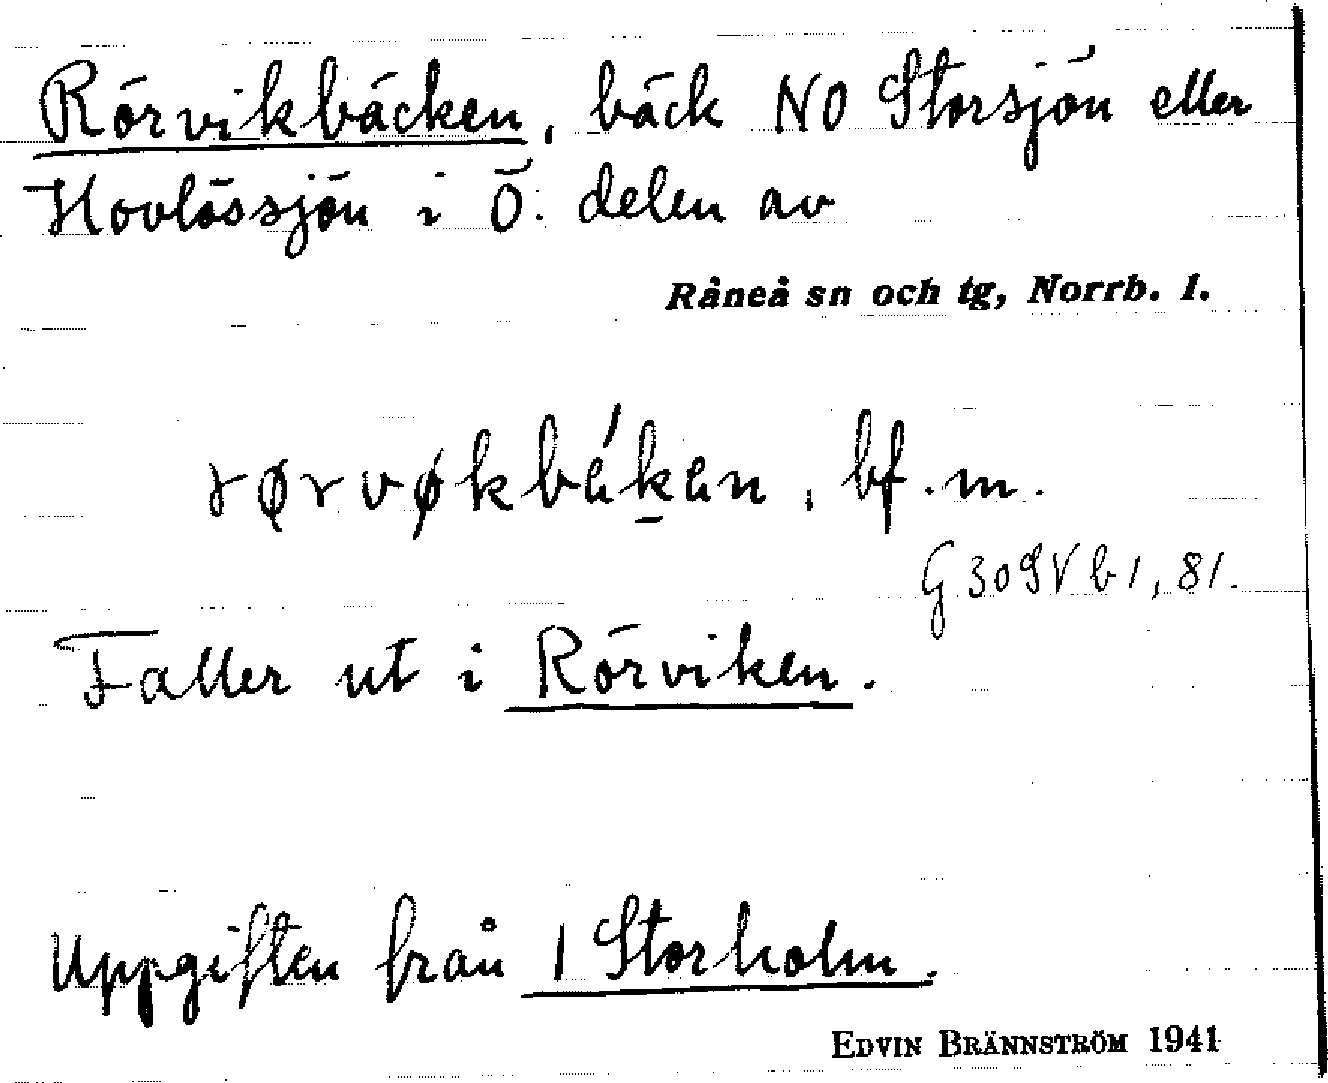 Rörvikbäcken, bäck NO Storsjön eller
Hovlössjön i Ö. delen av
Råneå sn och tg, Norrb. l.
bf. m.
G 30 SV b 1, 81.
Faller ut i Rörviken.
Uppgiften från 1 Storholm.
EDVIN BRÄNNSTRÖM 1941